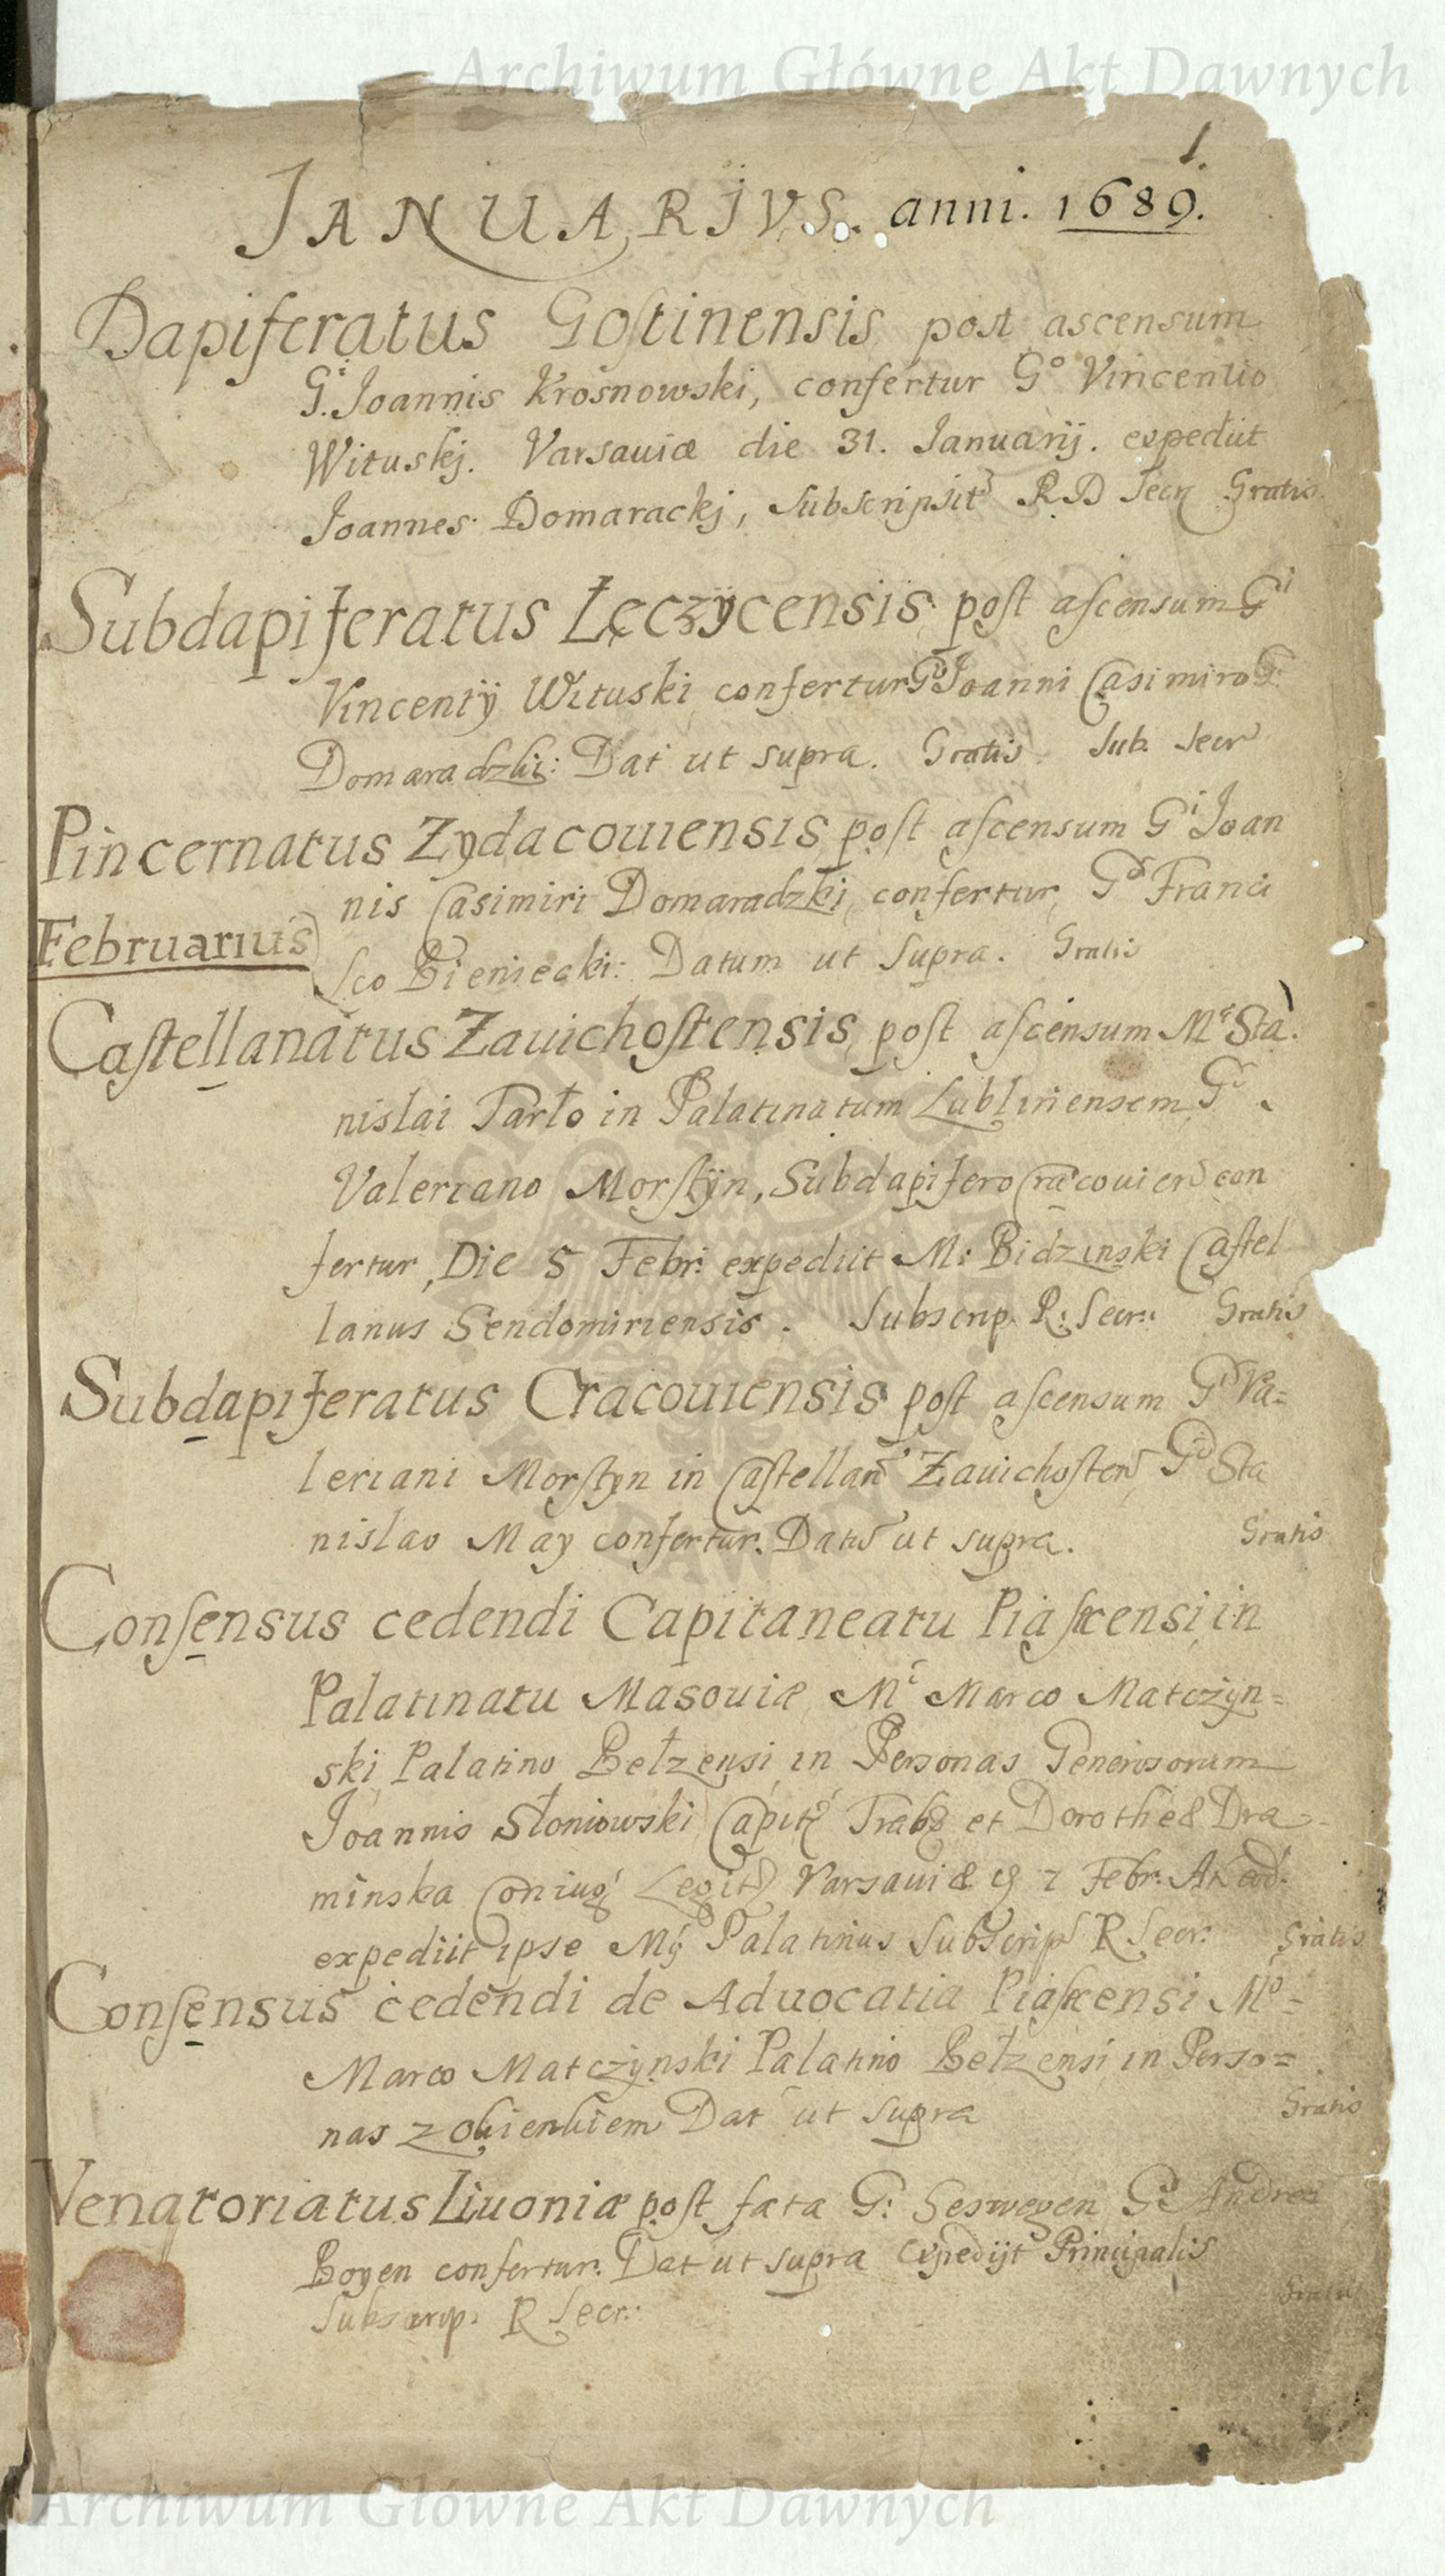 Archiwum Główne Akt Dawnych
1.
JANUARIVS. anni. 1689.
Dapiferatus Gostinensis post ascensum
Gi. Joannis Krosnowski, confertur Go Vincentio
Wituskj. Varsauiæ die 31. Januarij. expediit
Joannes Domarackj, Subscripsit R D Secr Gratis
Subdapiferatus Łęczÿcensis post ascensum Gi
Vincentÿ Wituski confertur Go Joanni Casimiro
Domaradzki: Dat ut supra. Gratis. Sub. Secr
Pincernatus Zydacouiensis post ascensum Gi Joan
nis Casimiri Domaradzki, confertur, Go Franci
Februarius
sco Bieniecki: Datum ut supra. Gratis
Castellanatus Zauichostensis post ascensum Mci Sta.
nislai Tarło in Palatinatum Lublinensem Go
Valeriano Morstÿn, Subdapifero Cracouien con
fertur, Die 5 Febr: expediit M: Bidzinski Castel
lanus Sendomiriensis. Subscrip. R: Secr: Gratis
Subdapiferatus Cracouiensis post ascensum Gi Va=
leriani Morstyn in Castellan Zauichosten Go Sta
nislao May confertur. Datu ut supra. Gratis
Consensus cedendi Capitaneatu Piascensi in
Palatinatu Masouiæ Mci Marco Matczÿn=
ski Palatino Bełzensi in Personas Generosorum
Joannis Słoniowski Capit Tremb et Dorotheæ Dra
minska Coniug Legit Varsauiæ 7 Febr:
expediit ipse Mg Palatinus Subscrip R Secr: Gratis
Consensus cedendi de Aduocatia Piascensi Mo=
Marco Matczÿnski Palatino Bełzensi in Perso=
nas Dat ut supra Gratis
Venatoriatus Liuoniæ post fata G: Seswegen Go Andreæ
Boyen confertur. Dat ut supra Expedijt Principalis
Subscrip. R Secr: Gratis
Archiwum Główne Akt Dawnych